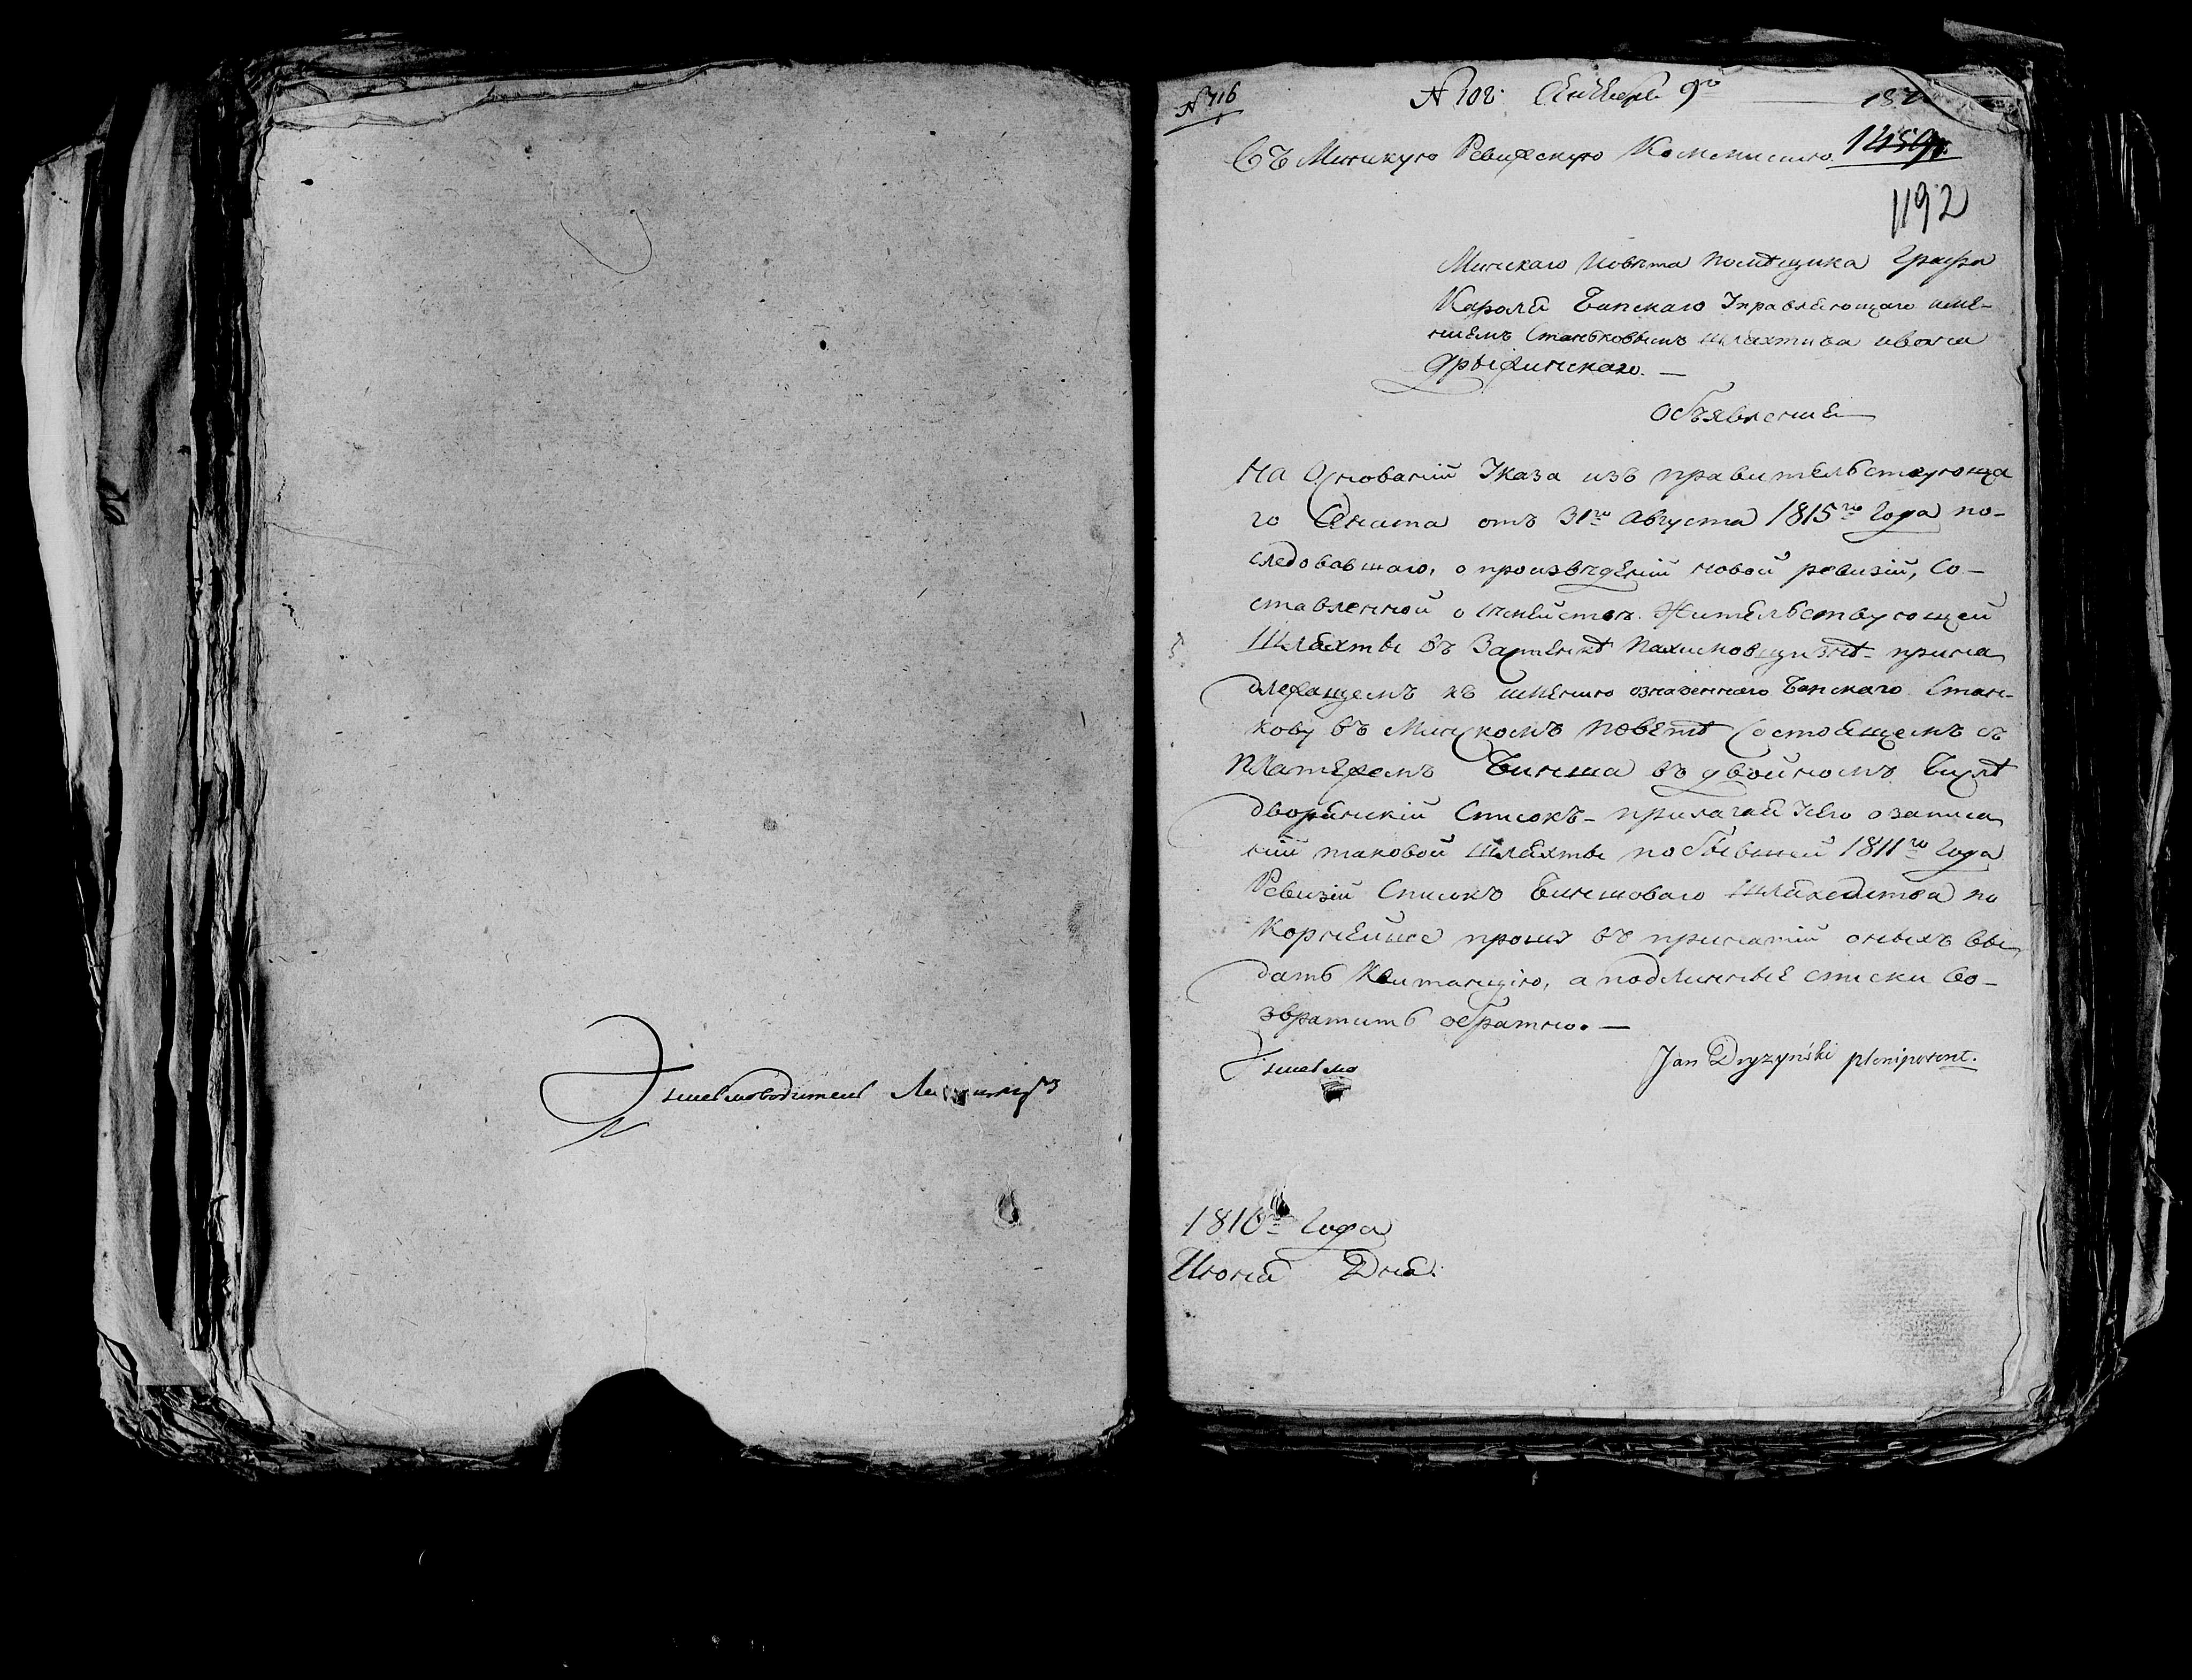 Письмоводитель
№ 716
№ 108. Октября 9го
Въ Минскую Ревизскую Коммисию.
1192
Минскаго Повѣта помѣщика Графа
Кароля Чапскаго Управляющаго имѣ-
ниемъ Станьковымъ шляхтича Ивана
Дрыжинскаго. —
Объявление
На Основании Указа изъ правительствующа
го Сената отъ 31го Августа 1815го Года по-
следовавшаго, о произведении новой ревизии, Со-
ставленной о жительствующей
Шляхты въ Застенкѣ прина
длежащемъ къ имѣнию означенного Чапскаго Стань-
кову въ Минскомъ Повѣтѣ Состоящемъ съ
платежемъ Чинша въ двойномъ Числѣ
дворянский Списокъ - прилагая Усего о записа
нии таковой Шляхты по бывшей 1811го Года
Ревизии Списокъ Чиншоваго Шляхедства по
Корнейше прошу въ принятии оныхъ Вы
дать Квитанцию, а подлинные списки Во-
звратить обратно. —
Jan Dryzyński plenipotent.
1816го Года
Июня Дня.